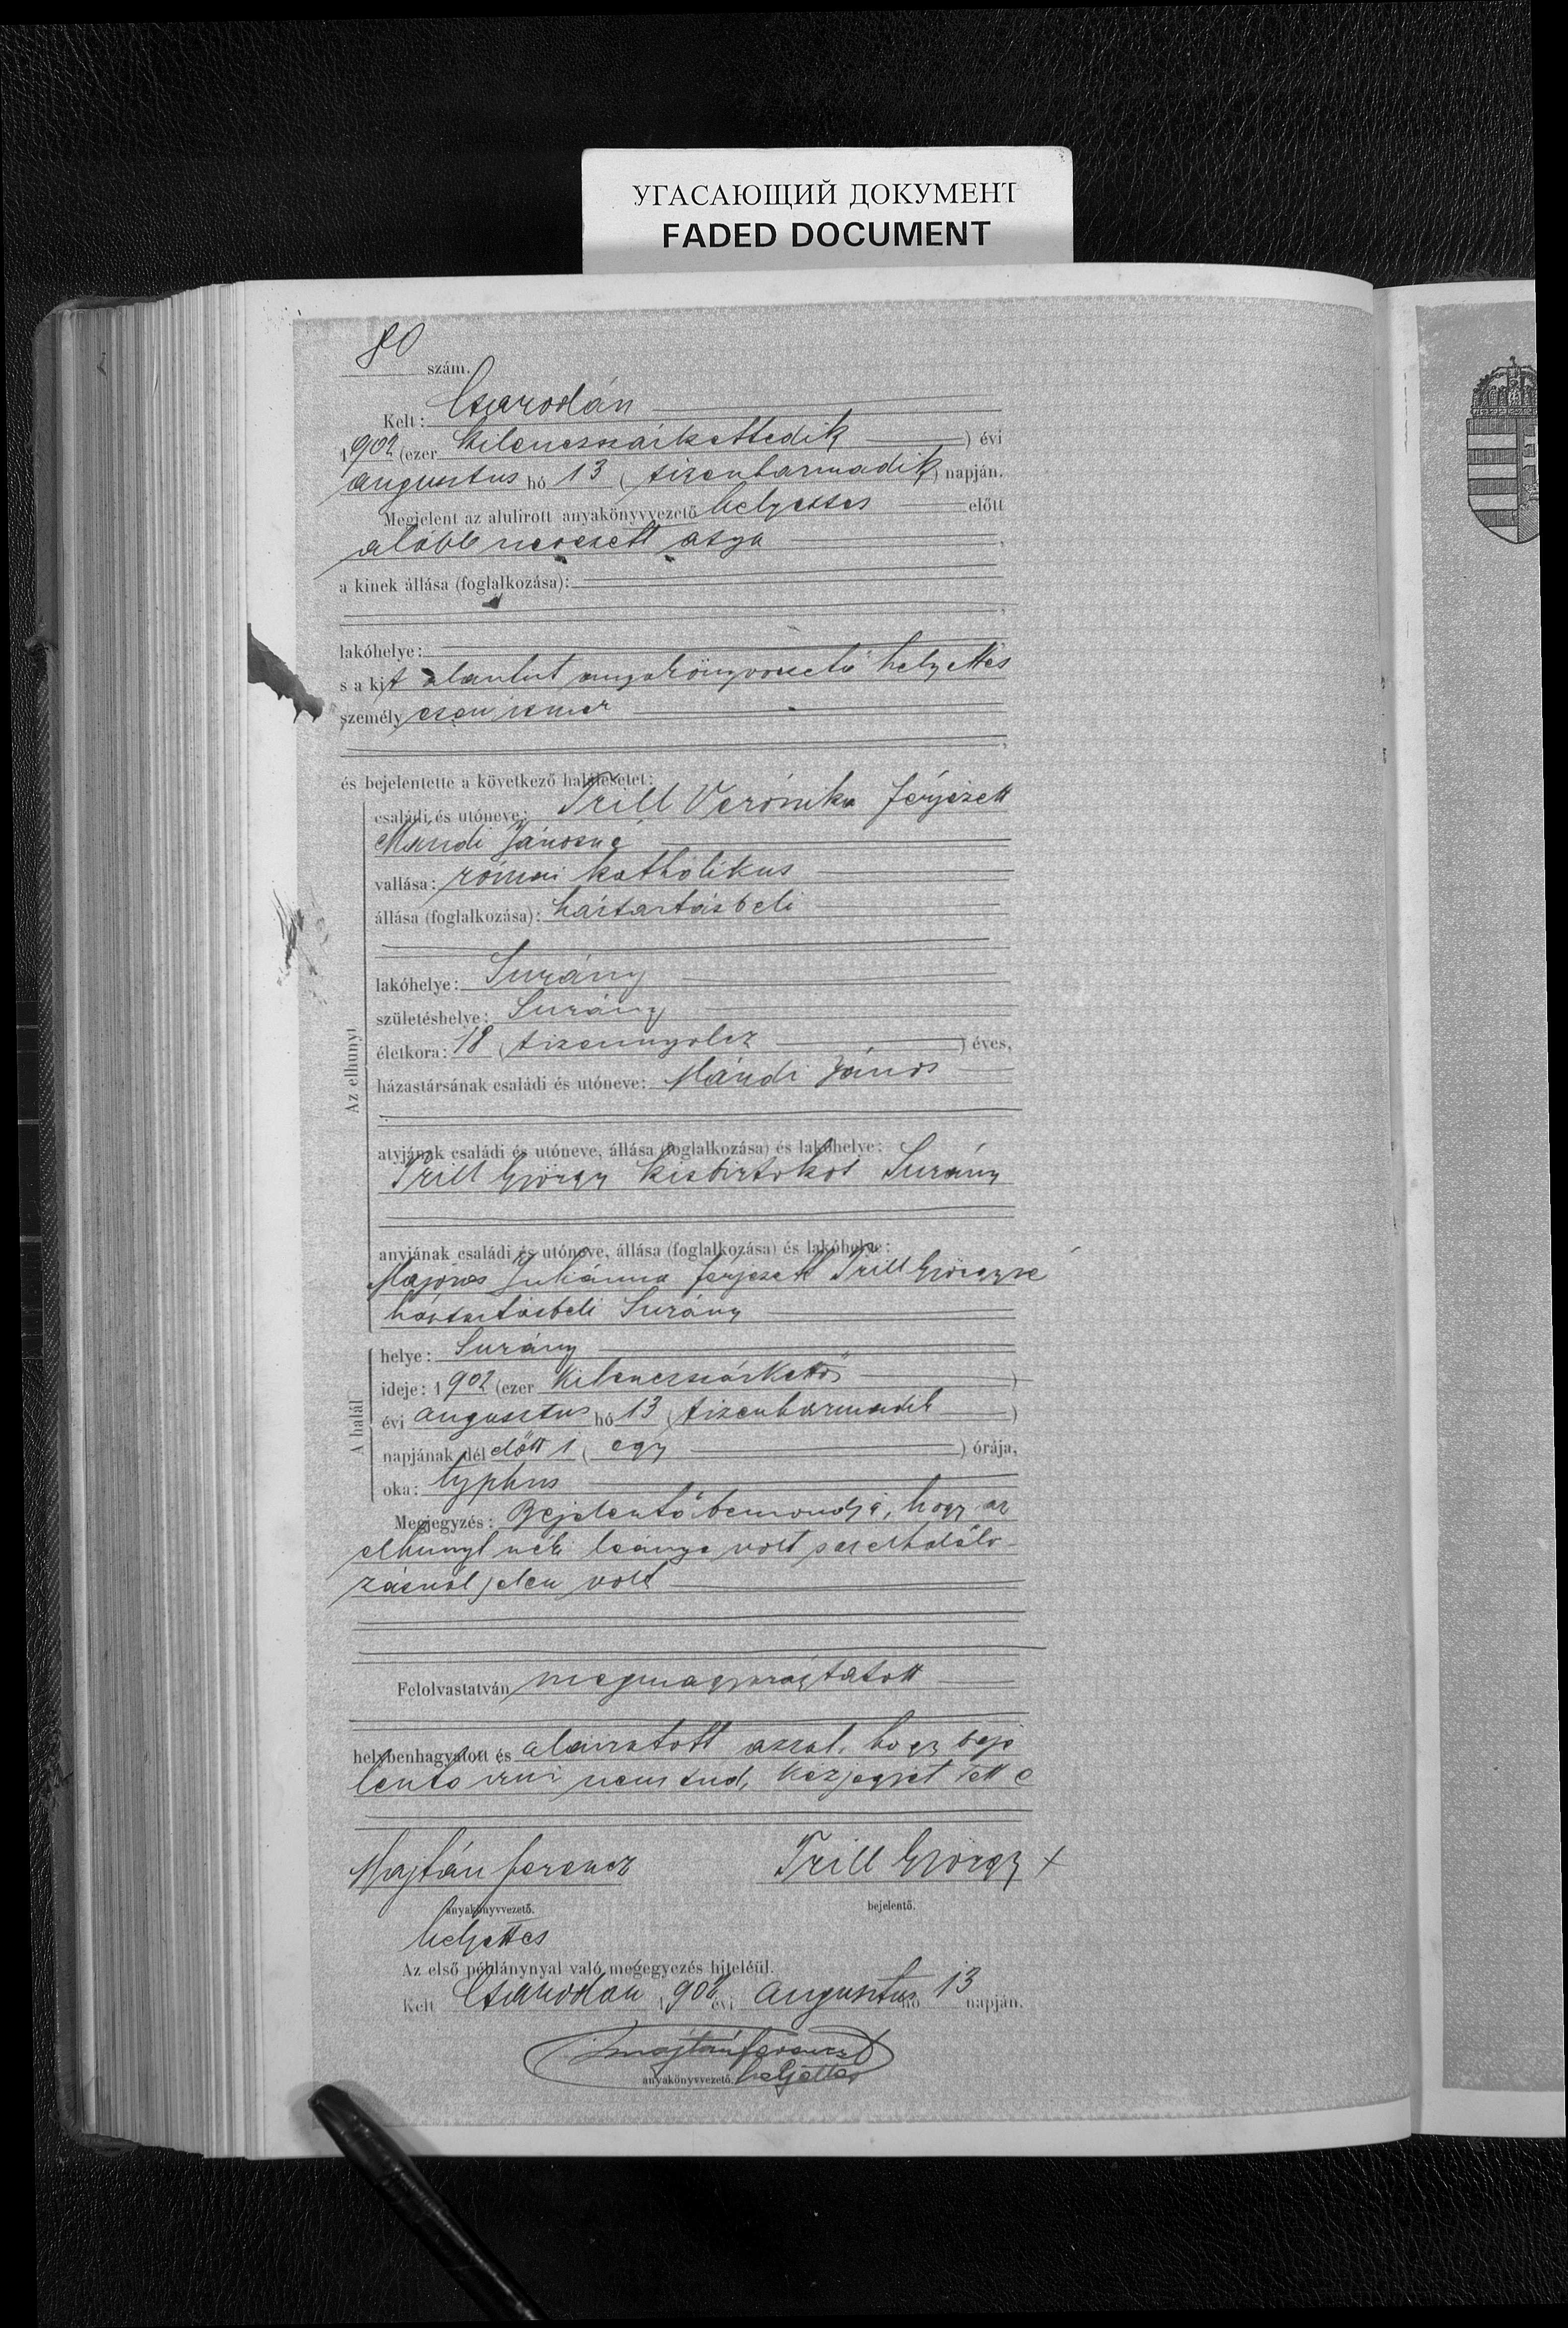 УГАСАЮЩИЙ ДОКУМЕНТ
FADED DOCUMENT
80 szám.
Kelt: Csarodán
1902 (ezer kilencszázkettedik) évi
augusztus hó 13 (tizenharmadik) napján.
Megjelent az alulirott anyakönyvvezető helyettes előtt
alább nevezett atya
a kinek állása (foglalkozása):
lakóhelye:
s a kit alantirt anyakönyvvezető helyettes
személyesen ismer
és bejelentette a következő halálesetet:
Az elhunyt
családi és utóneve: Trill Verónika férjezett
Mándi Jánosné
vallása: római katholikus
állása (foglalkozása): háztartásbeli
lakóhelye: Surány
születéshelye: Surány
életkora: 18 (tizennyolcz) éves,
házastársának családi és utóneve: Mándi János
atyjának családi és utóneve, állása (foglalkozása) és lakóhelye:
Trill György kisbirtokos Surány
anyjának családi és utóneve, állása (foglalkozása) és lakóhelye:
Juliánna férjezett Trill Györgyné
háztartásbeli Surány
A halál
helye: Surány
ideje: 1902 (ezer kilencszázkettő)
évi augusztus hó 13 (tizenharmadik)
napjának dél előtt 1 (egy) órája,
oka: typhus
Megjegyzés: Bejelentő bemondja, hogy az
elhunyt néki leánya volt s az elhalálo-
zásnál jelen volt
Felolvastatván megmagyaráztatott
helybenhagyatott és aláiratott azzal, hogy beje
lentő irni nem tud, kézjegyét tett e
Majtán Ferencz
Trill György x
anyakönyvvezető.
bejelentő.
helyettes
Az első példánynyal való megegyezés hiteléül.
Kelt Csarodán 1902 évi augusztus hó 13 napján.
Majtán Ferencz
anyakönyvvezető. helyettes